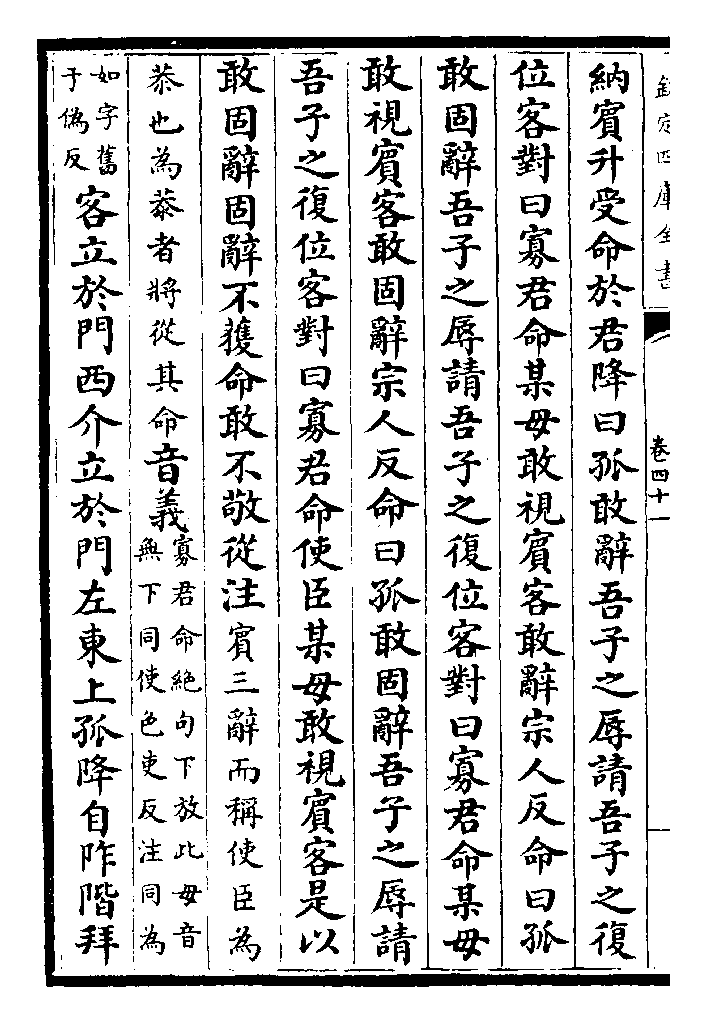 欽定四庫全書
卷四十一
納賓升受命於君降曰孤敢辭吾子之辱請吾子之復
位客對曰寡君命某毋敢視賓客敢辭宗人反命曰孤
敢固辭吾子之辱請吾子之復位客對曰寡君命某毋
敢視賓客敢固辭宗人反命曰孤敢固辭吾子之辱請
吾子之復位客對曰寡君命使臣某毋敢視賓客是以
敢固辭固辭不獲命敢不敬從注賓三辭而稱使臣為
恭也為恭者將從其命音義寡君命絶句下放此毋音
無下同使色吏反注同為
如字舊
于偽反客立於門西介立於門左東上孤降自阼階拜